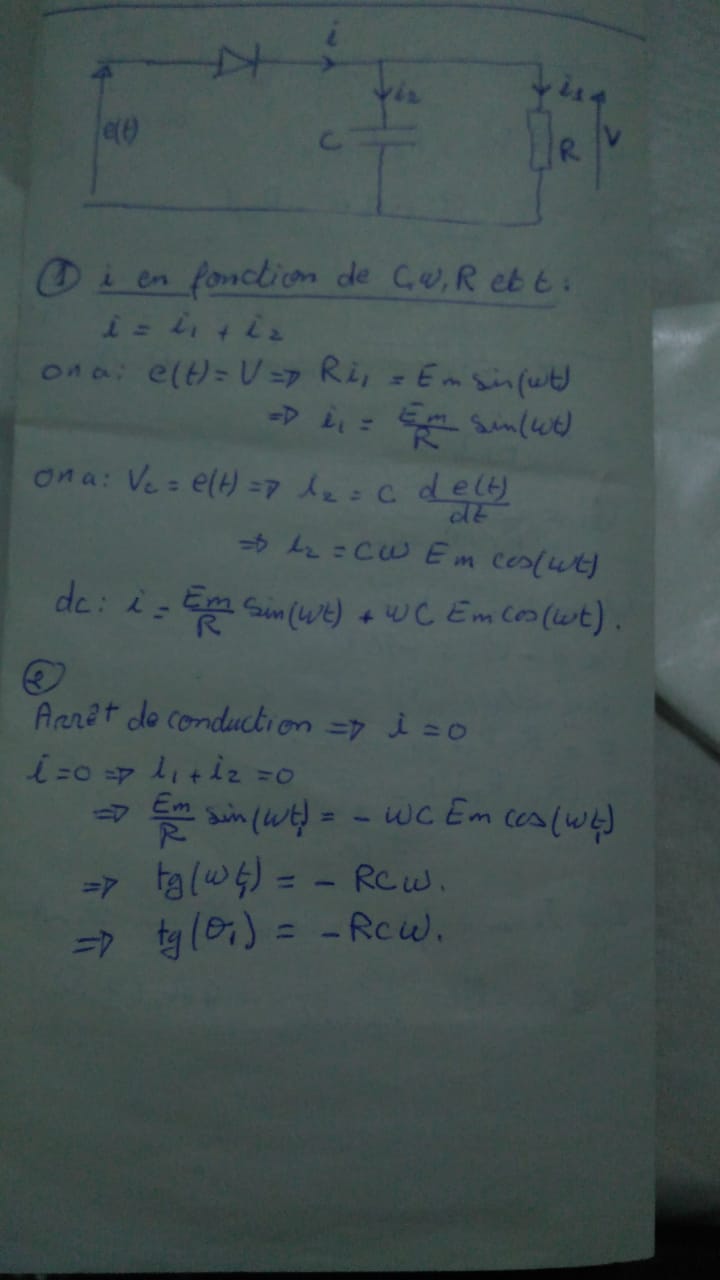 i
i₂
i₁
e(t)
C
R
V
① i en fonction de C, ω, R et t :
i = i₁ + i₂
on a : e(t) = V => R i₁ = Em sin(ωt)
=> i₁ = Em/R sin(ωt)
on a : Vc = e(t) => i₂ = C d e(t)/dt
=> i₂ = Cω Em cos(ωt)
dc : i = Em/R sin(ωt) + ωC Em cos(ωt).
②
Arrêt de conduction => i = 0
i = 0 => i₁ + i₂ = 0
=> Em/R sin(ωt₁) = - ωC Em cos(ωt₁)
=> tg(ωt₁) = - RCω.
=> tg(θ₁) = - RCω.